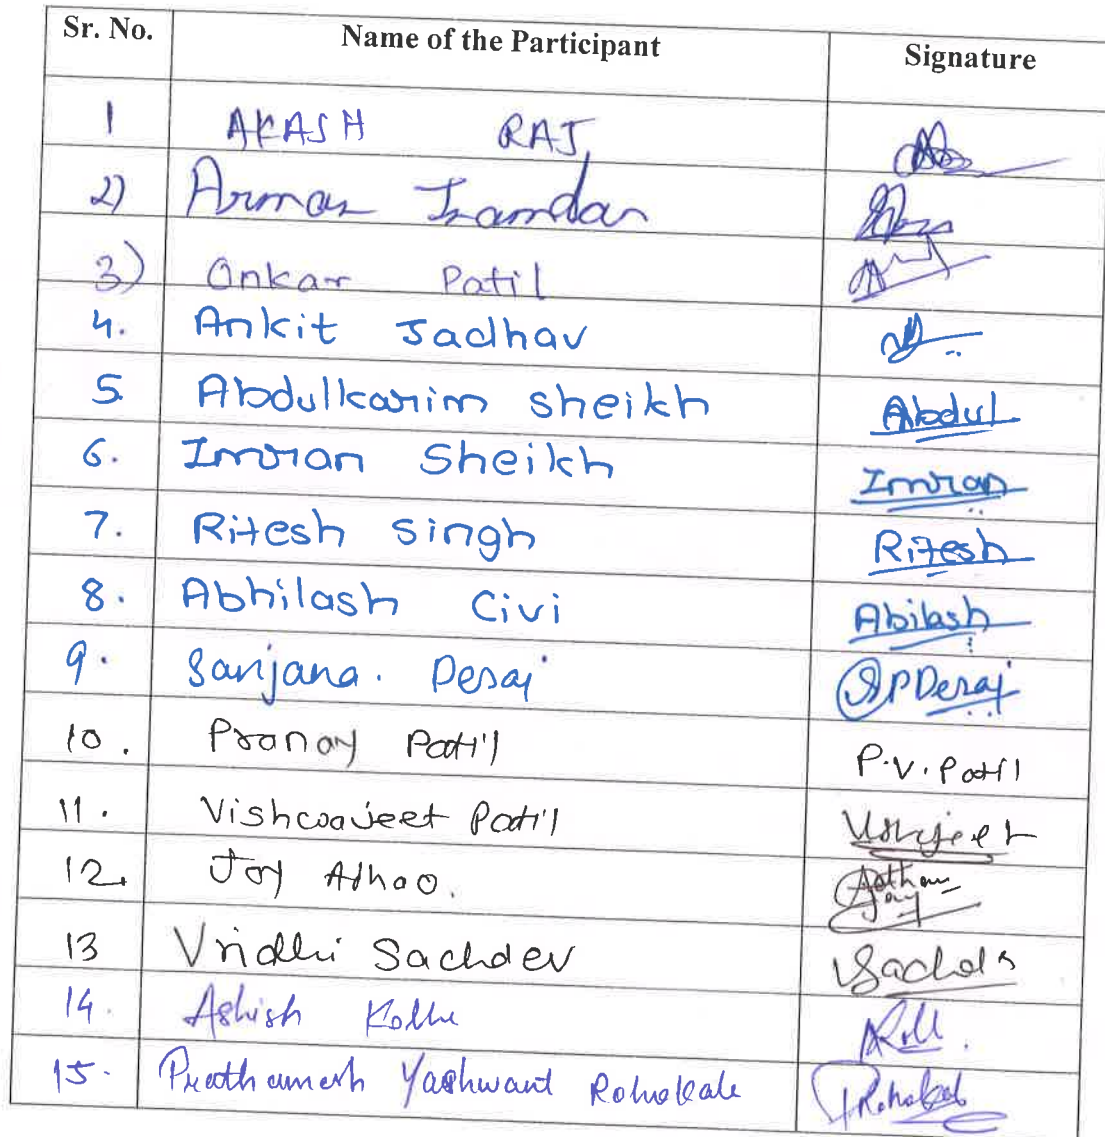 Sr. No. Name of the Participant Signature
1 AKASH RAJ
2) Arman Inamdar
3) Onkar Patil
4. Ankit Jadhav
5. Abdulkarim sheikh Abdul
6. Imran Sheikh Imran
7. Ritesh singh Ritesh
8. Abhilash Civi Abilash
9. Sanjana. Desai SPDesai
10. Pranay Patil P.V. Patil
11. Vishwajeet Patil
12. Joy
13 Vridhi Sachdev
14. Ashish Kolhe
15. Prathamesh Yashwant Rohokale